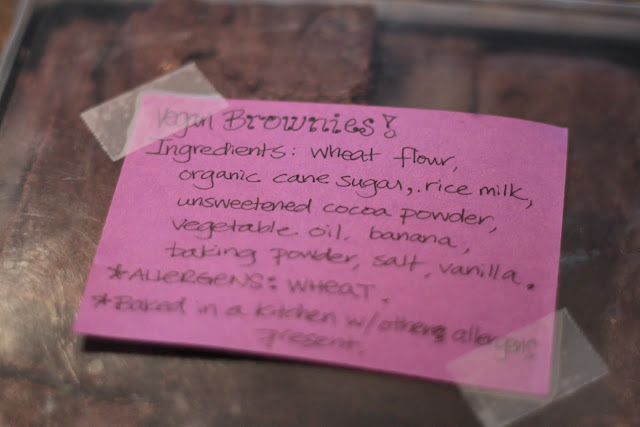 Vegan Brownies!
Ingredients: wheat flour,
organic cane sugar, rice milk,
unsweetened cocoa powder,
vegetable oil, banana,
baking powder, salt, vanilla.
*ALLERGENS: WHEAT.
*Baked in a kitchen w/others allergens
present.